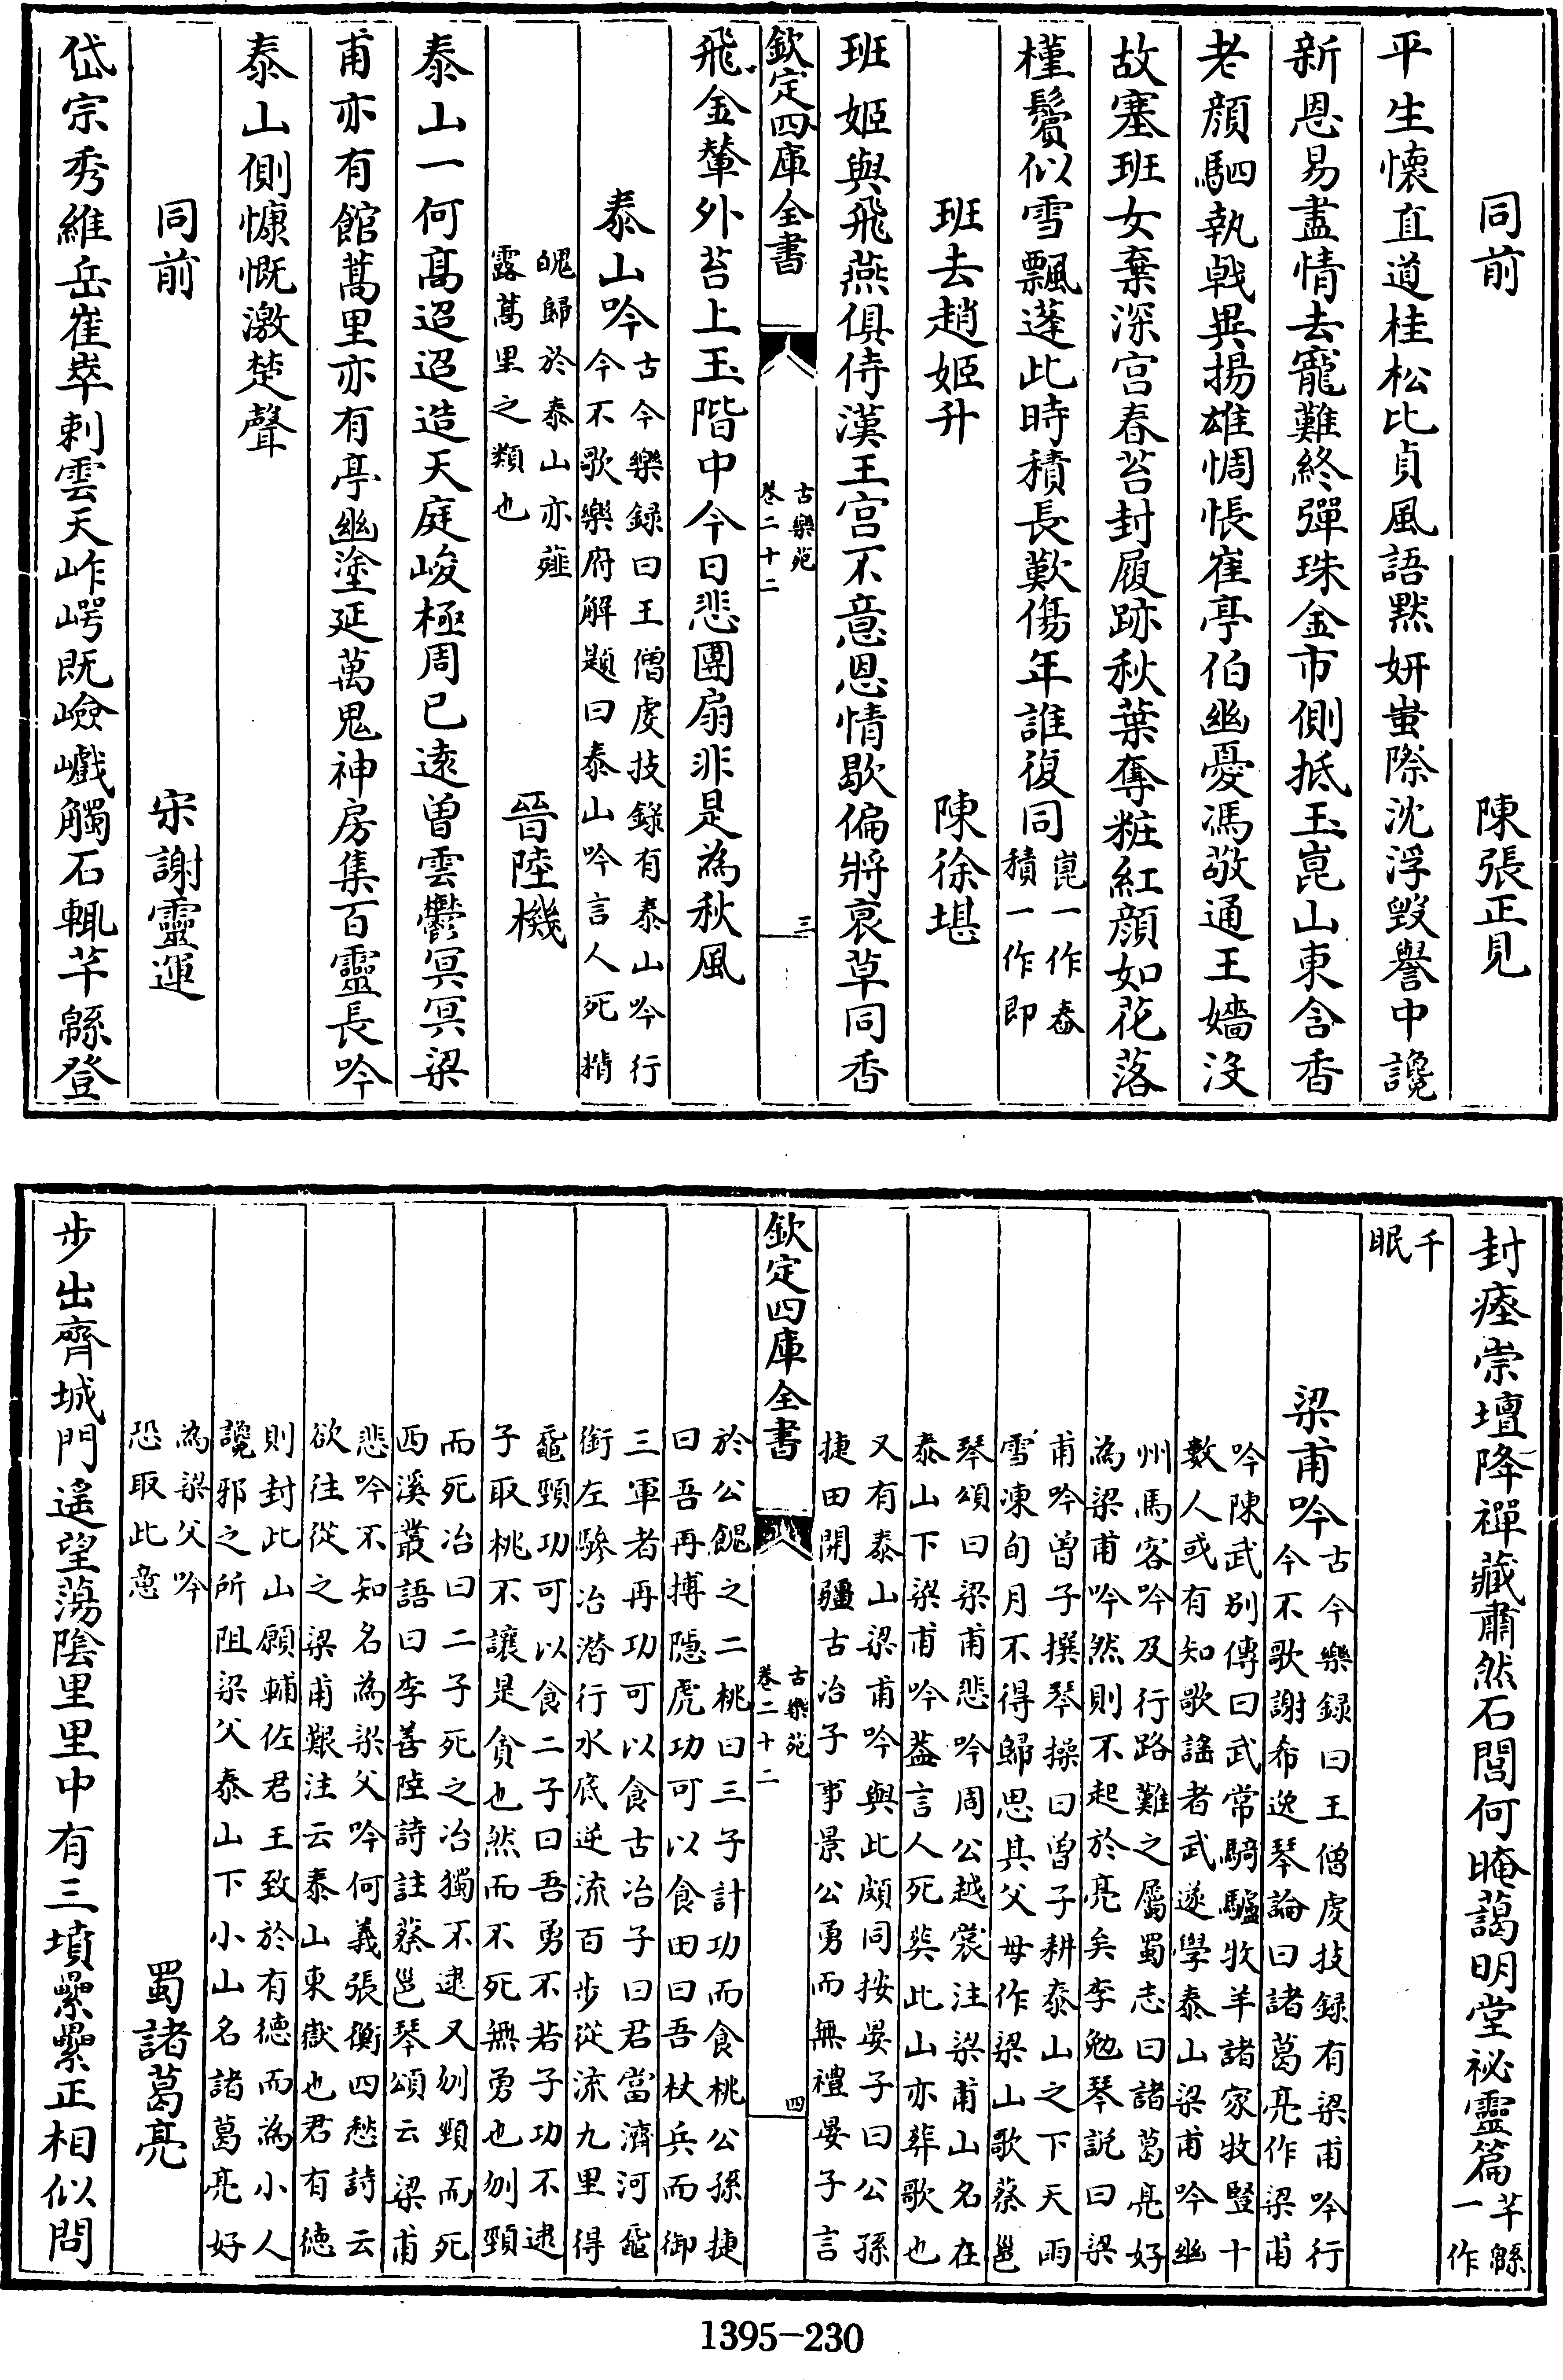 同前 陳張正見
平生懷直道桂松比貞風語黙妍蚩際沈浮毀譽中讒
新恩易盡情去寵難終彈珠金市側抵玉崑山東含香
老顔駟執戟異揚雄惆悵崔亭伯幽憂馮敬通王嬙沒
故塞班女棄深宫春苔封履跡秋葉奪粧紅顔如花落
槿鬢似雪飄蓬此時積長歎傷年誰復同崑一作舂
積一作即
班去趙姬升 陳徐堪
班姬與飛燕俱侍漢王宫不意恩情歇偏將哀草同香
欽定四庫全書
古樂苑
卷二十二
三
飛金輦外苔上玉階中今日悲團扇非是為秋風
泰山吟古今樂録曰王僧虔技錄有泰山吟行
今不歌樂府解題曰泰山吟言人死精
魄歸於泰山亦薤
露蒿里之類也
晉陸機
泰山一何髙迢迢造天庭峻極周已逺曽雲鬱冥冥梁
甫亦有館蒿里亦有亭幽塗延萬鬼神房集百靈長吟
泰山側慷慨激楚聲
同前 宋謝靈運
岱宗秀維岳崔崒刺雲天岞崿既嶮巇觸石輒芊緜登
封瘞崇壇降禪藏肅然石閭何晻藹明堂祕靈篇芊緜
一作
千
眠
梁甫吟古今樂録曰王僧虔技録有梁甫吟行
今不歌謝希逸琴論曰諸葛亮作梁甫
吟陳武别傳曰武常騎驢牧羊諸家牧豎十
數人或有知歌謡者武遂學泰山梁甫吟幽
州馬客吟及行路難之屬蜀志曰諸葛亮好
為梁甫吟然則不起於亮矣李勉琴説曰梁
甫吟曽子撰琴操曰曽子耕泰山之下天雨
雪凍旬月不得歸思其父母作梁山歌蔡邕
琴頌曰梁甫悲吟周公越裳注梁甫山名在
泰山下梁甫吟葢言人死葬此山亦葬歌也
又有泰山梁甫吟與此頗同按晏子曰公孫
捷田開疆古冶子事景公勇而無禮晏子言
欽定四庫全書
古樂苑
卷二十二
四
於公餽之二桃曰三子計功而食桃公孫捷
曰吾再搏隱虎功可以食田曰吾杖兵而御
三軍者再功可以食古冶子曰君當濟河黿
銜左驂冶潛行水底逆流百步從流九里得
黿頸功可以食二子曰吾勇不若子功不逮
子取桃不讓是貪也然而不死無勇也刎頸
而死冶曰二子死之冶獨不逮又刎頸而死
西溪叢語曰李善陸詩註蔡邕琴頌云梁甫
悲吟不知名為梁父吟何義張衡四愁詩云
欲往從之梁甫艱注云泰山東嶽也君有徳
則封此山願輔佐君王致於有徳而為小人
讒邪之所阻梁父泰山下小山名諸葛亮好
為梁父吟
恐取此意
蜀諸葛亮
步出齊城門遥望蕩隂里里中有三墳纍纍正相似問
1395-230